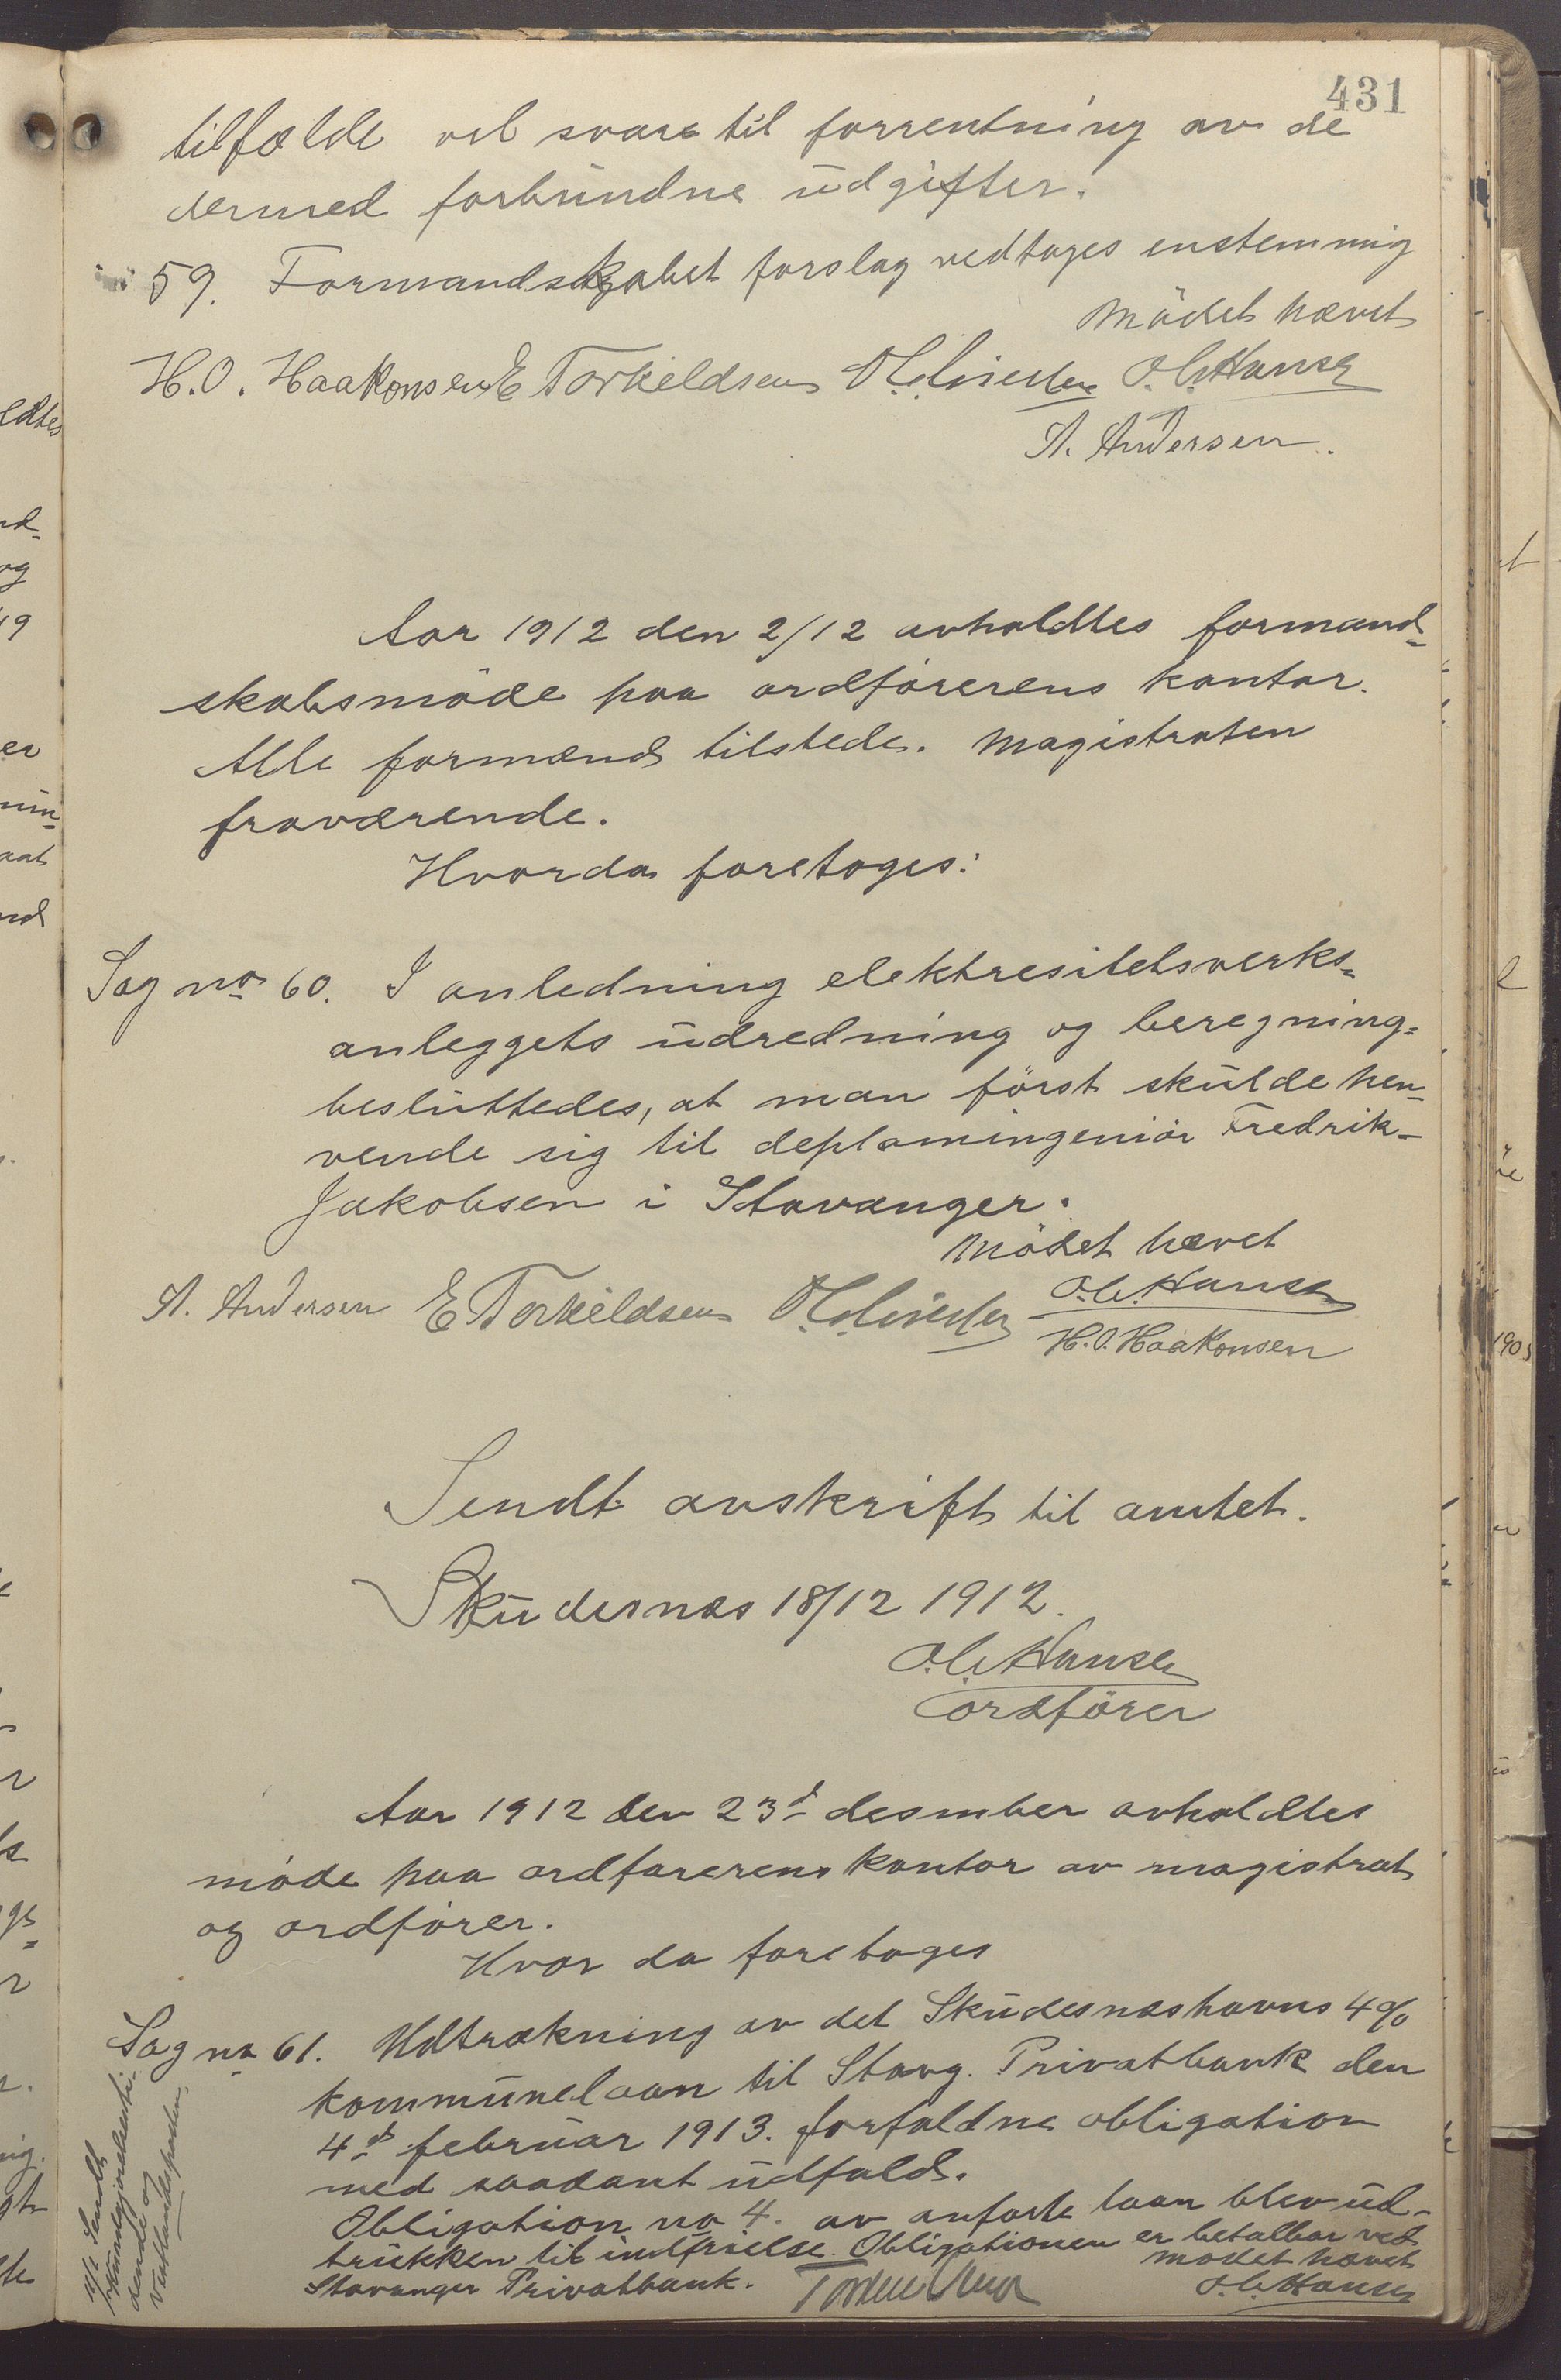 431
tilfælde vel svare til forrentning av de
dermed forbundne udgifter.
59. Formandskabet forslag vedtages enstemmig
Mødet hævet
H.O. Haakonsen E Torkildsen O.C. Hansen
A. Andersen.
Aar 1912 den 2/12 avholdtes formand-
skabsmøde paa ordførerens kontor.
Alle formænd tilstede. Magistraten
fraværende.
Hvorda foretoges:
Sag no 60. I anledning elektresitetsverks-
anleggets udredning og beregning-
besluttedes, at man först skulde hen-
vende sig til deplomingeniør Fredrik-
Jakobsen i Stavanger.
Mödet hævet
A. Andersen E Torkildsen O.C. Hansen
H.O. Haakonsen
Sendt avskrift til amtet.
Skudesnæs 18/12 1912.
O.C. Hansen
ordfører
Aar 1912 den 23d desmber avholdtes
møde paa ordførerens kontor av magistrat
og ordfører.
Hvor da foretoges
Sag no 61. Udtrækning av det Skudesnæshavns 4%
kommunelaan til Stavg. Privatbank den
4d februar 1913. forfaldne obligation
med saadant udfald.
Obligation no 4. av anførte laan blev ud-
trukken til indfrielse. Obligationen er betalbar ved
Stavanger Privatbank.
mødet hævet
O.C. Hansen
Sendt
Kundgjørelsen
og